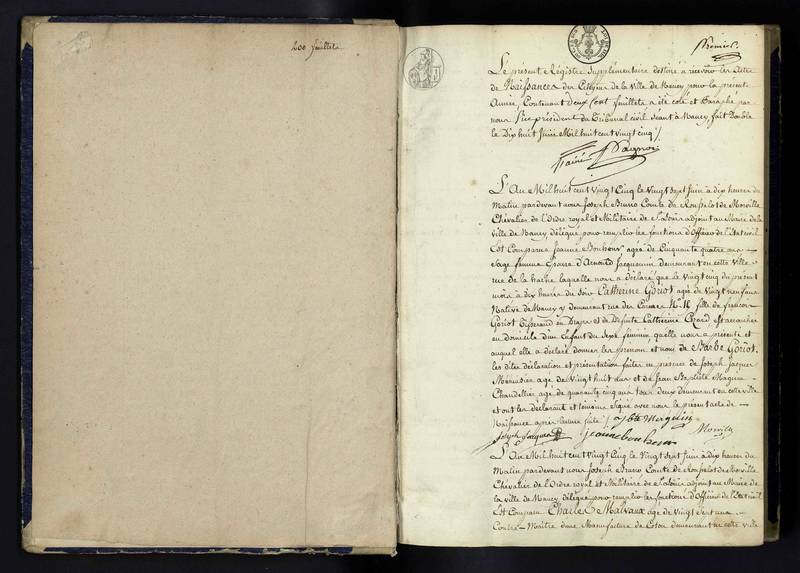 200 feuillets
Premier.
Le présent Régistre supplémentaire destiné à recevoir les Actes
de Naissances des Citoyens de la Ville de Nancy pour la présente
Année, Contenant deux Cent feuillets a été coté et Paraphé par
nous Vice président du Tribunal civil séant à Nancy, fait Double
le Dix huit Juin Mil huit cent vingt cinq
L'An Mil huit cent Vingt Cinq le Vingt sept Juin à dix heures du
Matin pardevant nous Joseph Bruno Comte de
Chevalier de l'Ordre royal et Militaire de adjoint au Maire de la
Ville de Nancy délégué pour remplir les fonctions d'Officier de l'Etat civil
Est Comparue Jeanne Bonhoure agée de Cinquante quatre ans
Sage femme Epouse d'Arnould Jacquemin demeurant en cette Ville
rue de la hache laquelle nous a déclaré que le Vingt cinq du présent
mois à dix heures du soir Catherine Goriot agée de Vingt neuf ans
Native de Nancy y demeurant rue des N. 14 fille de françois
Goriot Tisserand en Draps et de Defunte Catherine est accouchée
en domicile d'un Enfant du Sexe féminin, qu'elle nous a présenté et
auquel elle a déclaré donner les prénom et nom de Barbe Goriot,
les dites déclaration et présentation faites en présence de Joseph Jacques
Menuisier agé de Vingt huit ans et de Jean Baptiste
Chandellier agé de quarante cinq ans tous deux demeurant en cette ville
et ont les déclarant et témoins signé avec nous le présent acte de
Naissance après lecture faite
Joseph Jacques jeanne bonhoure
L'An Mil huit cent Vingt Cinq le Vingt sept Juin à dix heures du
Matin pardevant nous Joseph Bruno Comte de
Chevalier de l'Ordre royal et Militaire de adjoint au Maire de
la ville de Nancy délégué pour remplir les fonctions d'Officier de l'Etat civil
Est Comparu Charles Malvaux agé de Vingt sept ans
Contre-Maître dans Manufacture de Coton demeurant en cette ville